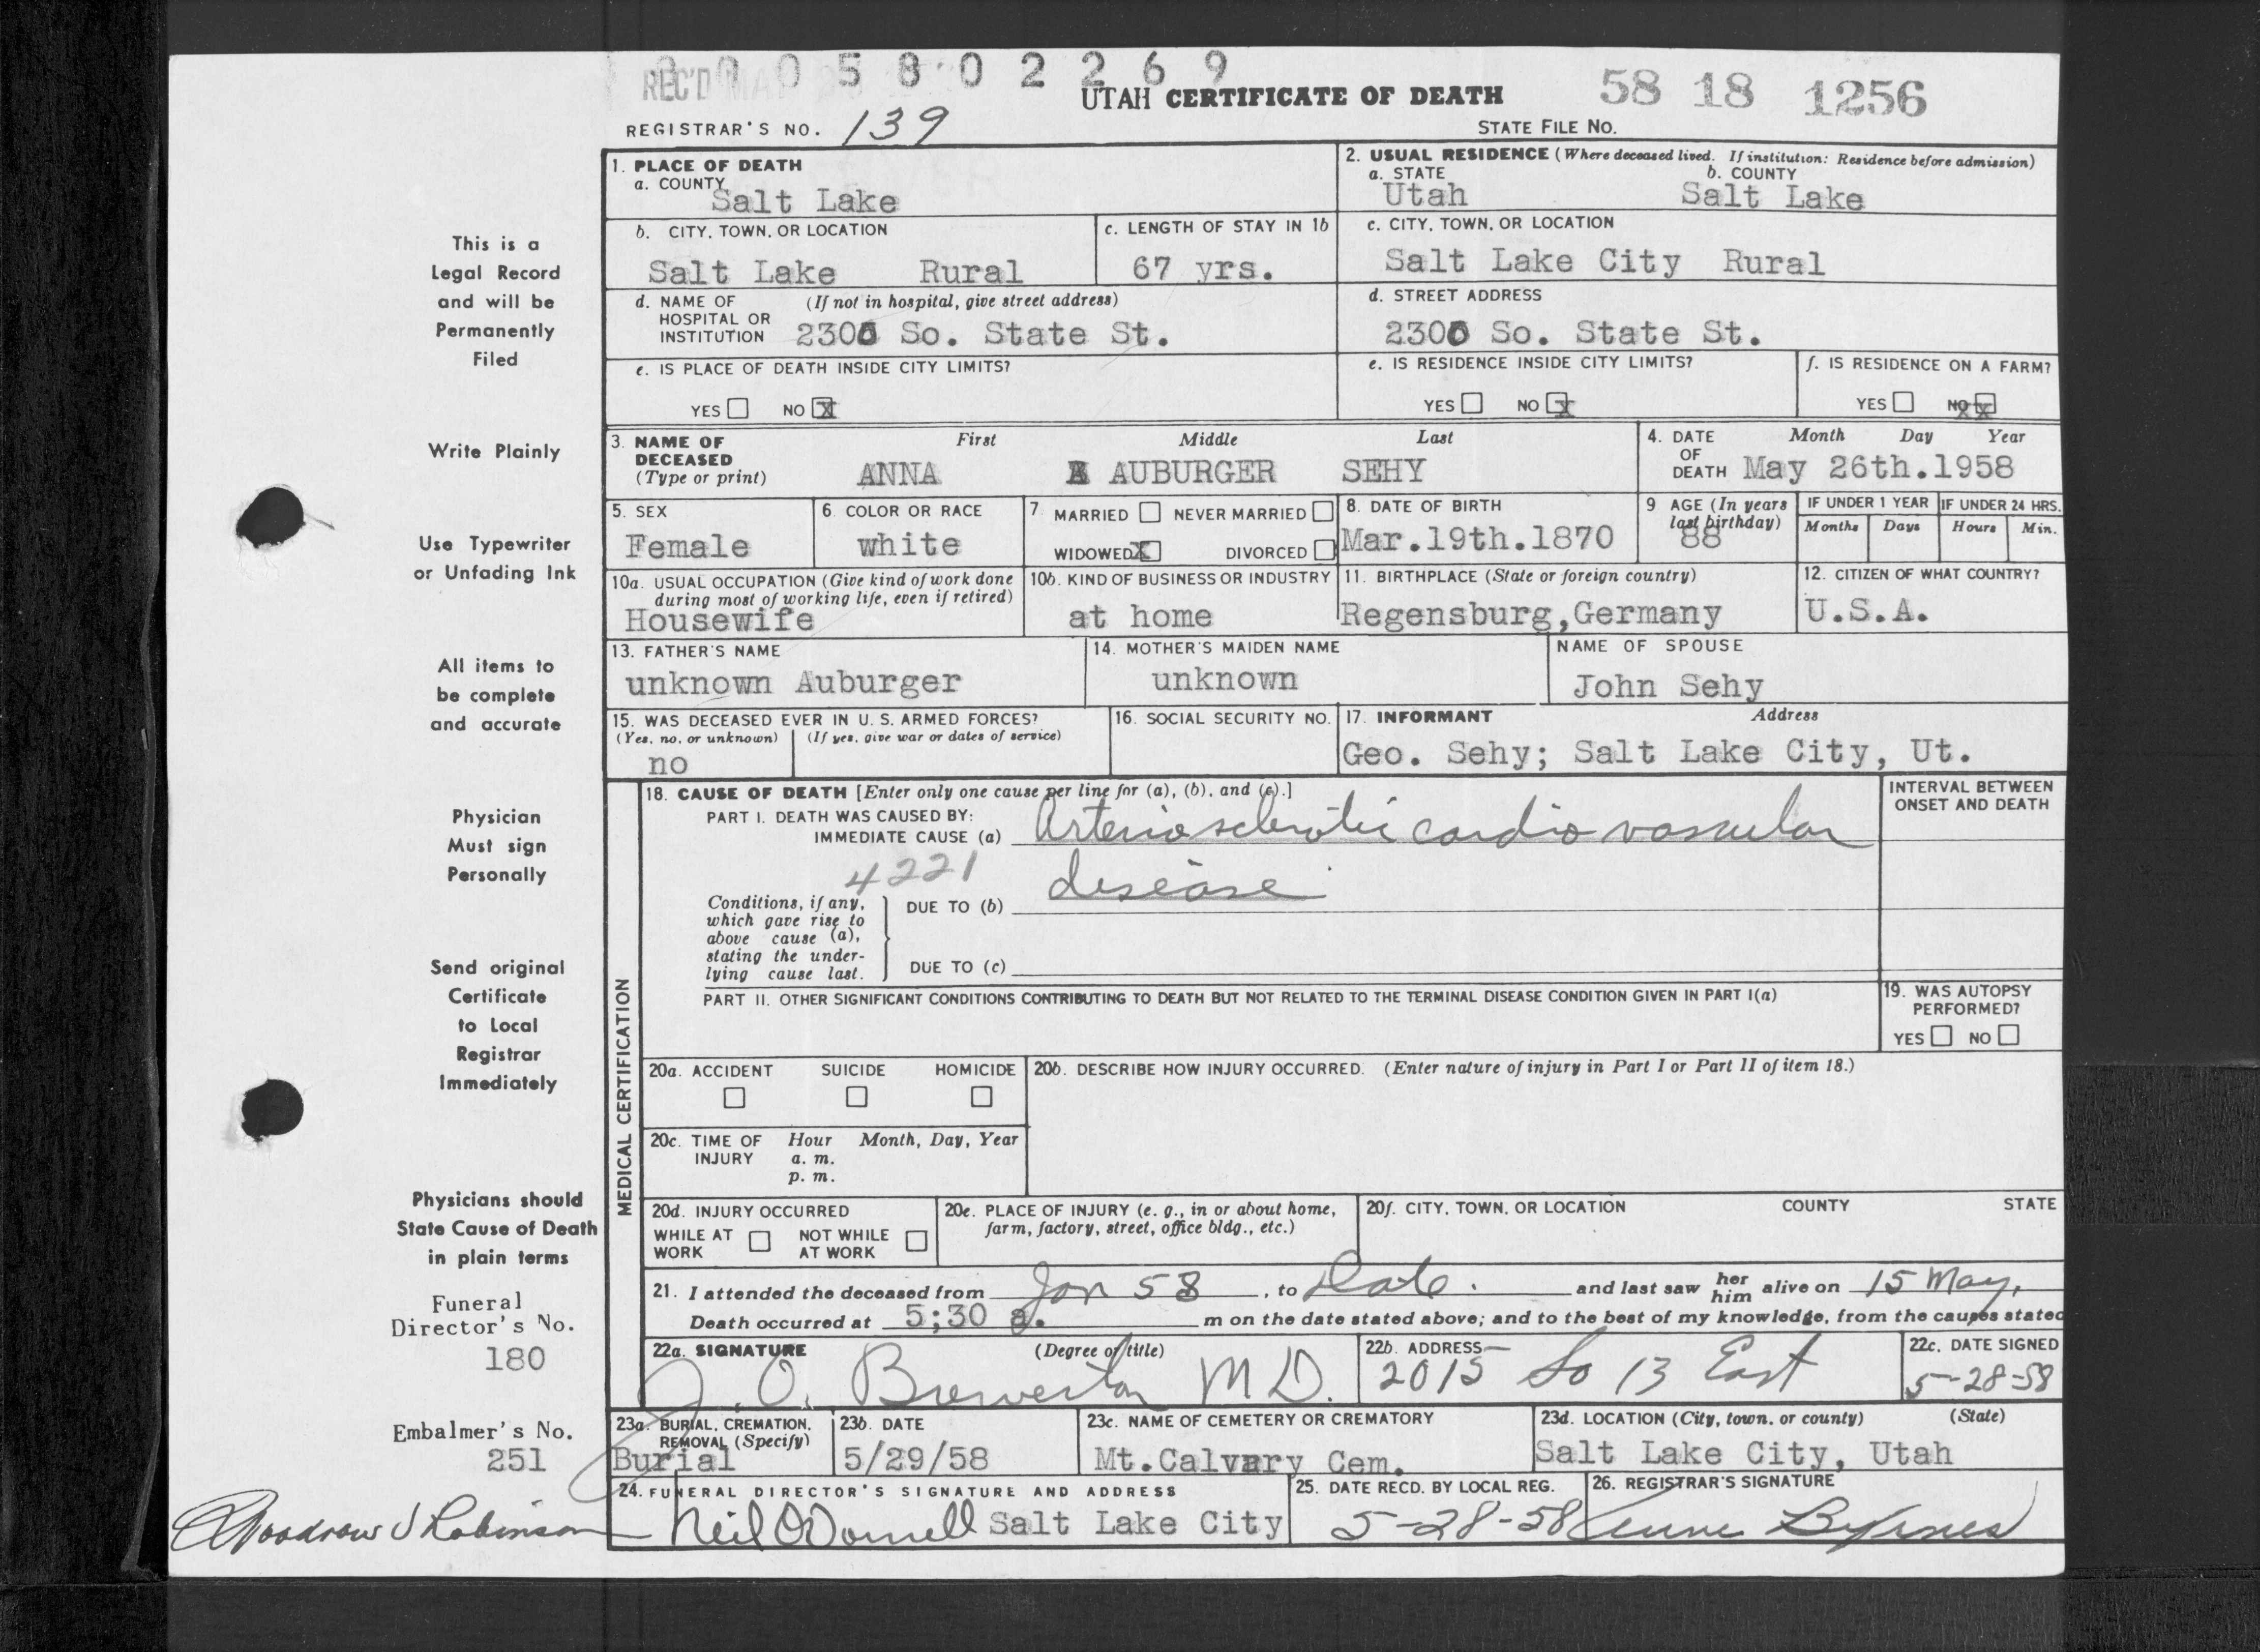 0 0 5 8 0 2 2 6 9
REC'D MA
UTAH CERTIFICATE OF DEATH
58 18 1256
REGISTRAR'S NO. 139
STATE FILE NO.
1. PLACE OF DEATH
a. COUNTY
Salt Lake
2. USUAL RESIDENCE (Where deceased lived. If institution: Residence before admission)
a. STATE b. COUNTY
Utah Salt Lake
b. CITY, TOWN, OR LOCATION
Salt Lake Rural
c. LENGTH OF STAY IN 1b
67 yrs.
c. CITY, TOWN, OR LOCATION
Salt Lake City Rural
d. NAME OF (If not in hospital, give street address)
HOSPITAL OR
INSTITUTION 2300 So. State St.
d. STREET ADDRESS
2300 So. State St.
e. IS PLACE OF DEATH INSIDE CITY LIMITS?
YES NO X
e. IS RESIDENCE INSIDE CITY LIMITS?
YES NO X
f. IS RESIDENCE ON A FARM?
YES NO X X
3. NAME OF
DECEASED
(Type or print)
First Middle Last
ANNA AUBURGER SEHY
4. DATE
OF
DEATH
Month Day Year
May 26th.1958
5. SEX
Female
6. COLOR OR RACE
white
7. MARRIED NEVER MARRIED
WIDOWED X DIVORCED
8. DATE OF BIRTH
Mar.19th.1870
9 AGE (In years
last birthday)
88
IF UNDER 1 YEAR IF UNDER 24 HRS.
Months Days Hours Min.
10a. USUAL OCCUPATION (Give kind of work done
during most of working life, even if retired)
Housewife
10b. KIND OF BUSINESS OR INDUSTRY
at home
11. BIRTHPLACE (State or foreign country)
Regensburg,Germany
12. CITIZEN OF WHAT COUNTRY?
U.S.A.
13. FATHER'S NAME
unknown Auburger
14. MOTHER'S MAIDEN NAME
unknown
NAME OF SPOUSE
John Sehy
15. WAS DECEASED EVER IN U. S. ARMED FORCES?
(Yes, no, or unknown) (If yes, give war or dates of service)
no
16. SOCIAL SECURITY NO.
17. INFORMANT Address
Geo. Sehy; Salt Lake City, Ut.
MEDICAL CERTIFICATION
18. CAUSE OF DEATH [Enter only one cause per line for (a), (b), and (c).]
PART I. DEATH WAS CAUSED BY:
IMMEDIATE CAUSE (a) Arterio sclerotic cardio vascular
4221 disease
Conditions, if any,
which gave rise to
above cause (a),
stating the under-
lying cause last.
DUE TO (b)
DUE TO (c)
INTERVAL BETWEEN
ONSET AND DEATH
PART II. OTHER SIGNIFICANT CONDITIONS CONTRIBUTING TO DEATH BUT NOT RELATED TO THE TERMINAL DISEASE CONDITION GIVEN IN PART I(a)
19. WAS AUTOPSY
PERFORMED?
YES NO
20a. ACCIDENT SUICIDE HOMICIDE
20b. DESCRIBE HOW INJURY OCCURRED. (Enter nature of injury in Part I or Part II of item 18.)
20c. TIME OF Hour Month, Day, Year
INJURY a. m.
p. m.
20d. INJURY OCCURRED
WHILE AT NOT WHILE
WORK AT WORK
20e. PLACE OF INJURY (e. g., in or about home,
farm, factory, street, office bldg., etc.)
20f. CITY, TOWN, OR LOCATION COUNTY STATE
21. I attended the deceased from Jan 58, to Date. and last saw her him alive on 15 May,
Death occurred at 5;30 a. m on the date stated above; and to the best of my knowledge, from the causes stated
22a. SIGNATURE (Degree or title)
J. O. Brewerton M D.
22b. ADDRESS
2015 So 13 East
22c. DATE SIGNED
5-28-58
23a. BURIAL, CREMATION,
REMOVAL (Specify)
Burial
23b. DATE
5/29/58
23c. NAME OF CEMETERY OR CREMATORY
Mt.Calvary Cem.
23d. LOCATION (City, town, or county) (State)
Salt Lake City, Utah
24. FUNERAL DIRECTOR'S SIGNATURE AND ADDRESS
Neil O'Donnell Salt Lake City
25. DATE RECD. BY LOCAL REG.
5-28-58
26. REGISTRAR'S SIGNATURE
Anne Byrnes
This is a
Legal Record
and will be
Permanently
Filed
Write Plainly
Use Typewriter
or Unfading Ink
All items to
be complete
and accurate
Physician
Must sign
Personally
Send original
Certificate
to Local
Registrar
Immediately
Physicians should
State Cause of Death
in plain terms
Funeral
Director's No.
180
Embalmer's No.
251
Woodrow J Robinson